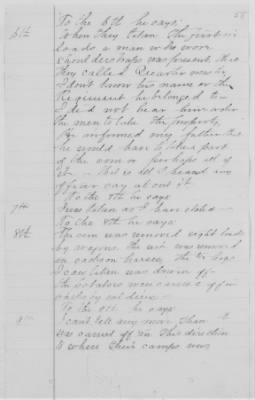 58
To the 6th he says;
6th When they taken the first
loads a man who wore
shoulder straps was present, who
they called Quarter master
I don't know his name or the
Regiment he belonged to
I did not hear him order
the men to take the property,
He informed my father that
he would have to take part
of the corn or perhaps all of
it. This is all I heard any
officer say about it
To the 7th he says
7th It was taken as I have stated
To the 8th he says
8th The corn was removed eight loads
by wagons the rest was removed
on cadson horses, the hogs
I saw taken was driven off
the potatoes were carried off in
sacks by soldiers
To the 9th he says
9th I can't tell any more than it
was carried off in the direction
to where their camps was